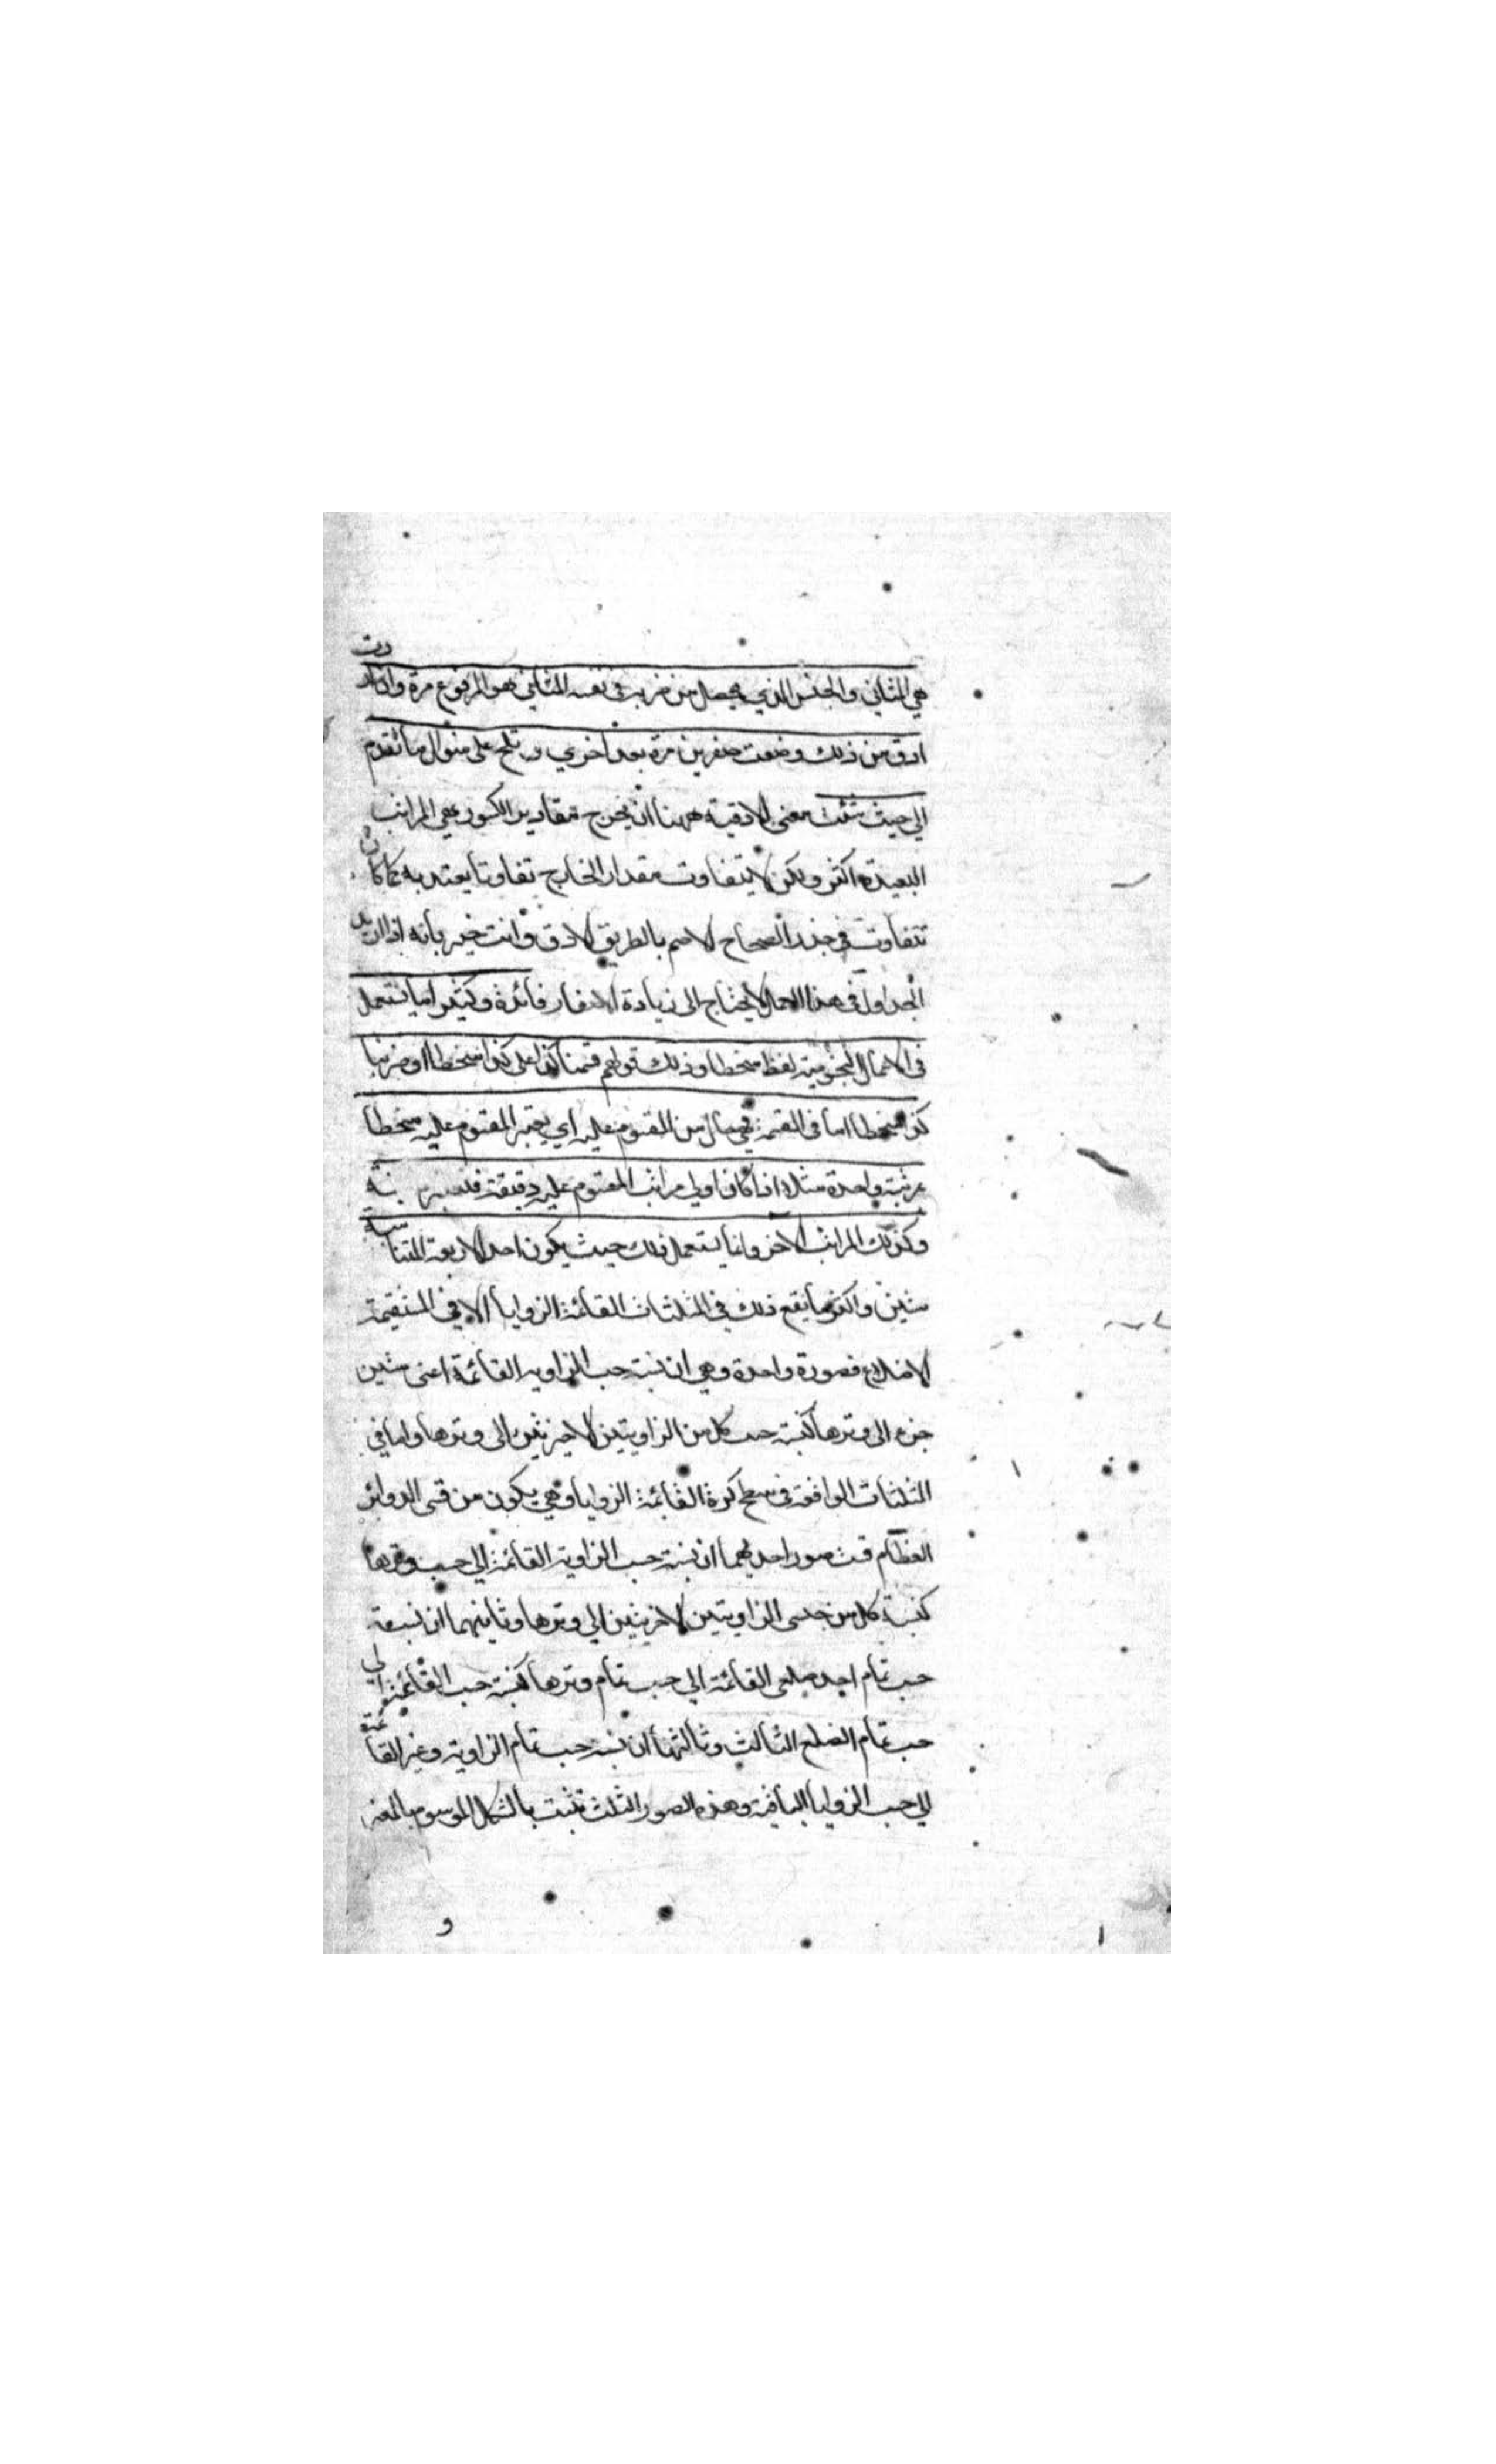 هي المثاني والجنس الذي يحصل من ضربه في نفسه المثاني هو المرفوع مرة وان اردت
ادق من ذلك وضعت صفرين مرة بعد اخري و على منوال ما تقدم
الي حيث شئت معنى الادقية ههنا ان يخرج مقادير الكسور هي المراتب
البعيدة اكثر ولكن لا يتفاوت مقدار الخارج تفاوتا يعتد به كما كان
تتفاوت في جذر الصحاح الاصم بالطريق الادق وانت خبير بأنه اذا اريد
الجداول في هذا العمل لا يحتاج الى زيادة الاصفار فائدة وكثيرا ما يستعمل
في الاعمال النجومية لفظ منحطا وذلك قولهم قسمنا كذا على كذا منحطا او ضربنا
كذا منحطا اما في القسمة فهي حال من المقسوم عليه اي يعتبر المقسوم عليه منحطا
بمرتبة واحدة مثلا اذا كان اولي مراتب المقسوم عليه دقيقة فنعتبر ثانية
وكذلك المراتب الآخر وانما يستعمل ذلك حيث يكون احد الاربعة المتناسبة
ستين واكثر ما يقع ذلك في المثلثات القائمة الزوايا اما في المستقيمة
الاضلاع فصورة واحدة وهي ان نسبة جيب الزاوية القائمة اعنى ستين
جزء الى وترها كنسبة جيب كل من الزاويتين الاخيرتين الى وترها واما في
المثلثات الواقعة في سطح كرة القائمة الزوايا وهي يكون من قسي الدوائر
العظام فثلث صور احديهما ان نسبة جيب الزاوية القائمة الي جيب وترها
كنسبة كل من جيبي الزاويتين الاخريتين الي وترها وثانيهما ان نسبة
جيب تمام احد ضلعي القائمة الي جيب تمام وترها كنسبة جيب القائمة الي
جيب تمام الضلع الثالث وثالثها ان نسبة جيب تمام الزاوية وغير القائمة
الي جيب الزوايا الباقية وهذه الصور الثلث تثبت بالشكل الموسوم بالمغنى